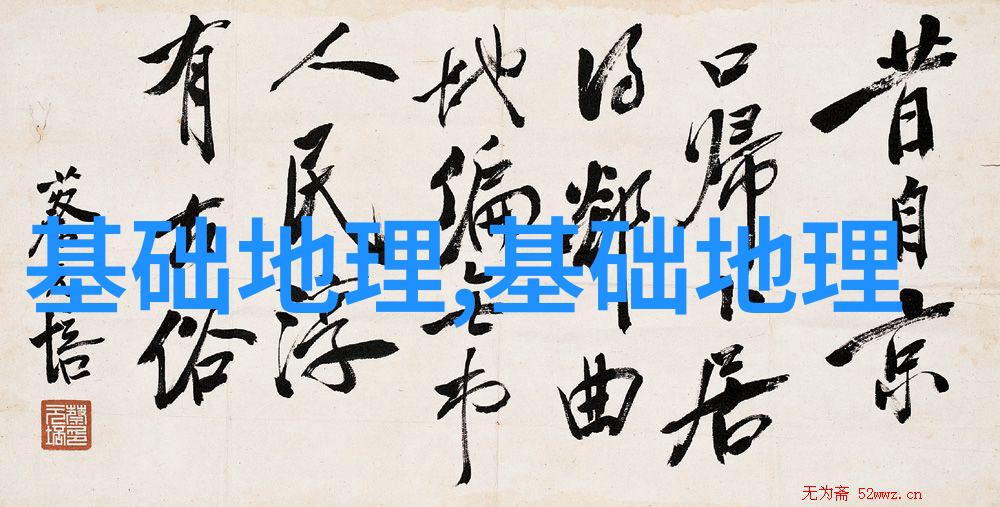 昔自京
口歸卜居
得鄰曲
地偏無市
人民淳
有古俗
蔡元培
基础地理,基础地理
无为斋 52wwz.cn